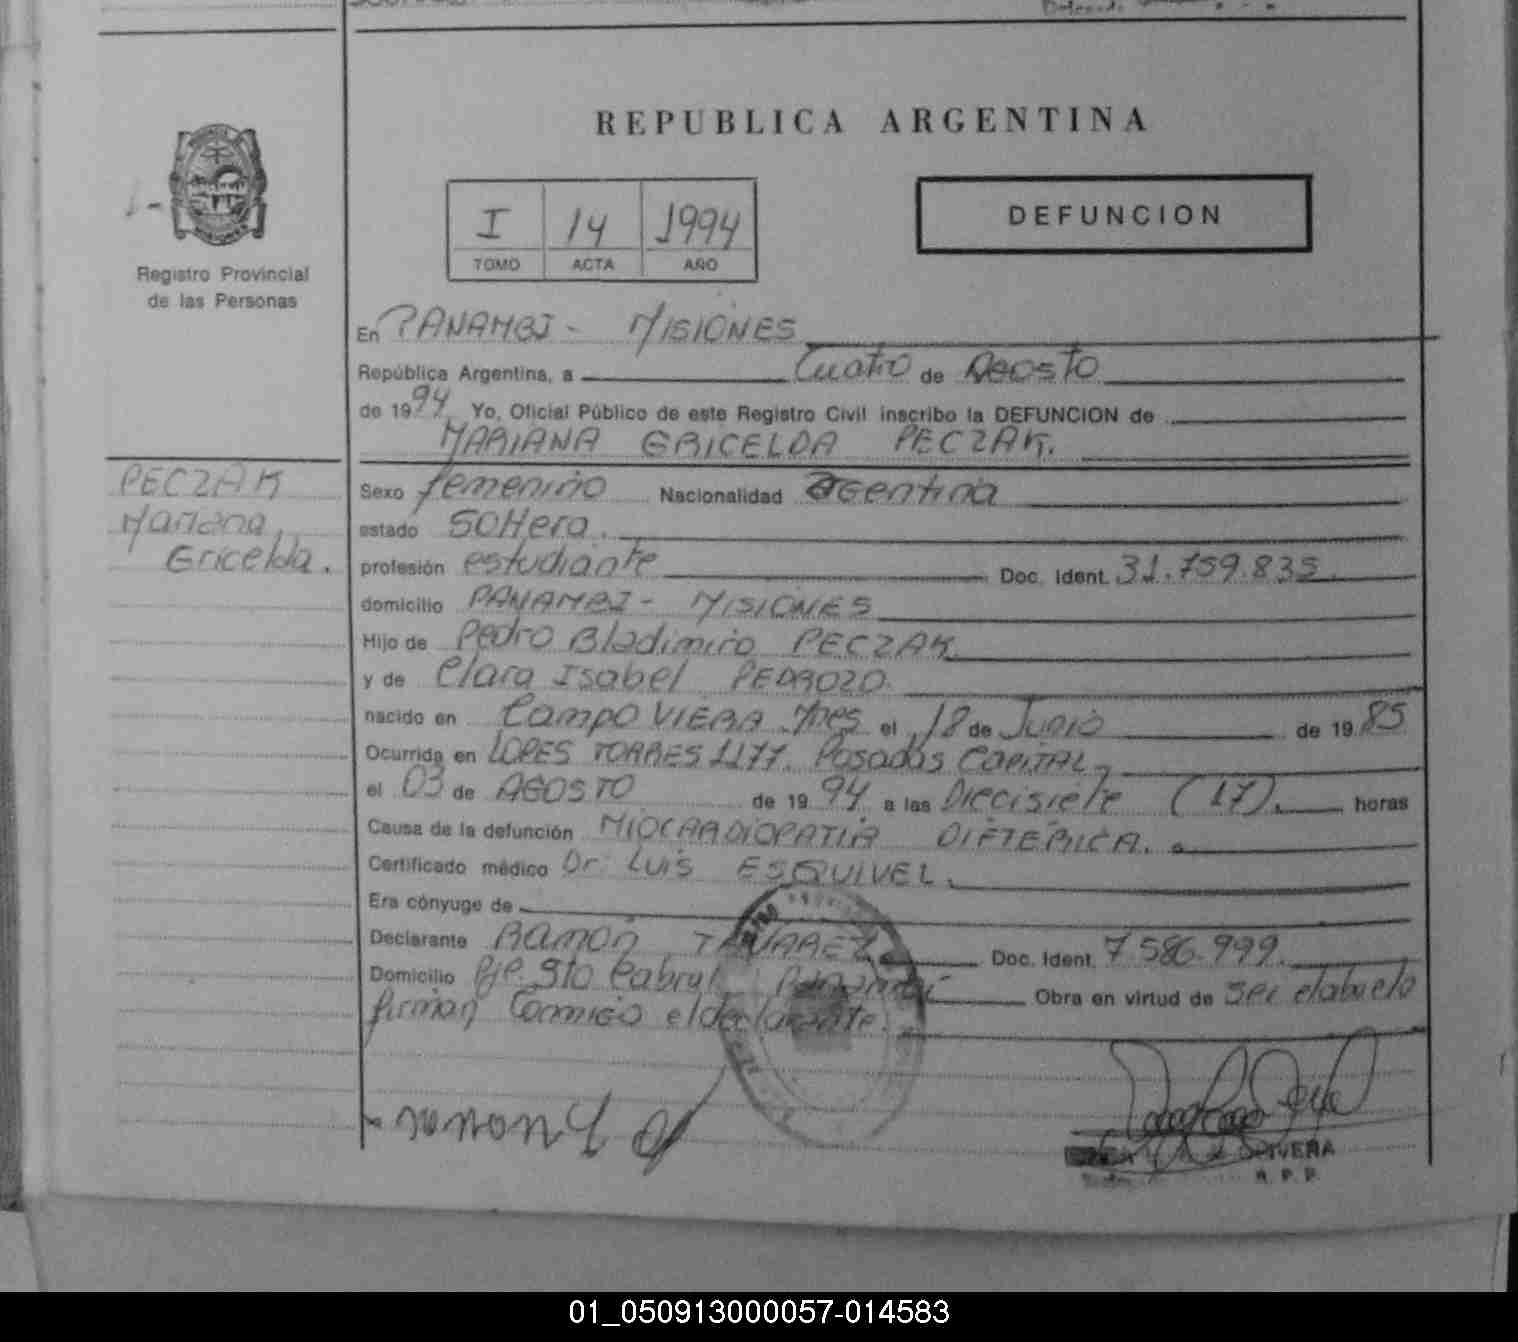 REPUBLICA ARGENTINA
I 14 1994
TOMO ACTA AÑO
DEFUNCION
Registro Provincial
de las Personas
En PANAMBI - MISIONES
República Argentina, a Cuatro de Agosto
de 1994 Yo, Oficial Público de este Registro Civil inscribo la DEFUNCION de
MARIANA GRICELDA PECZAK.
PECZAK
Mariana
Gricelda.
Sexo femenino Nacionalidad Argentina
estado Soltera.
profesión estudiante Doc. Ident. 31.759.835.
domicilio PANAMBI - MISIONES
Hijo de Pedro Bladimiro PECZAK
y de Clara Isabel PEDROZO.
nacido en Campo VIERA Mnes el 18 de Junio de 1985
Ocurrida en LOPES TORRES 1177. Posadas CAPITAL,
el 03 de AGOSTO de 1994 a las Diecisiete (17). horas
Causa de la defunción MIOCARDIOPATIA DIFTERICA.
Certificado médico Dr. LUIS ESQUIVEL.
Era cónyuge de
Declarante RAMÓN Doc. Ident. 7.586.999.
Domicilio Pje. Sto Cabral Panambí Obra en virtud de ser el abuelo
firman Conmigo el declarante.
OLIVERA
R. P. P.
01_050913000057-014583